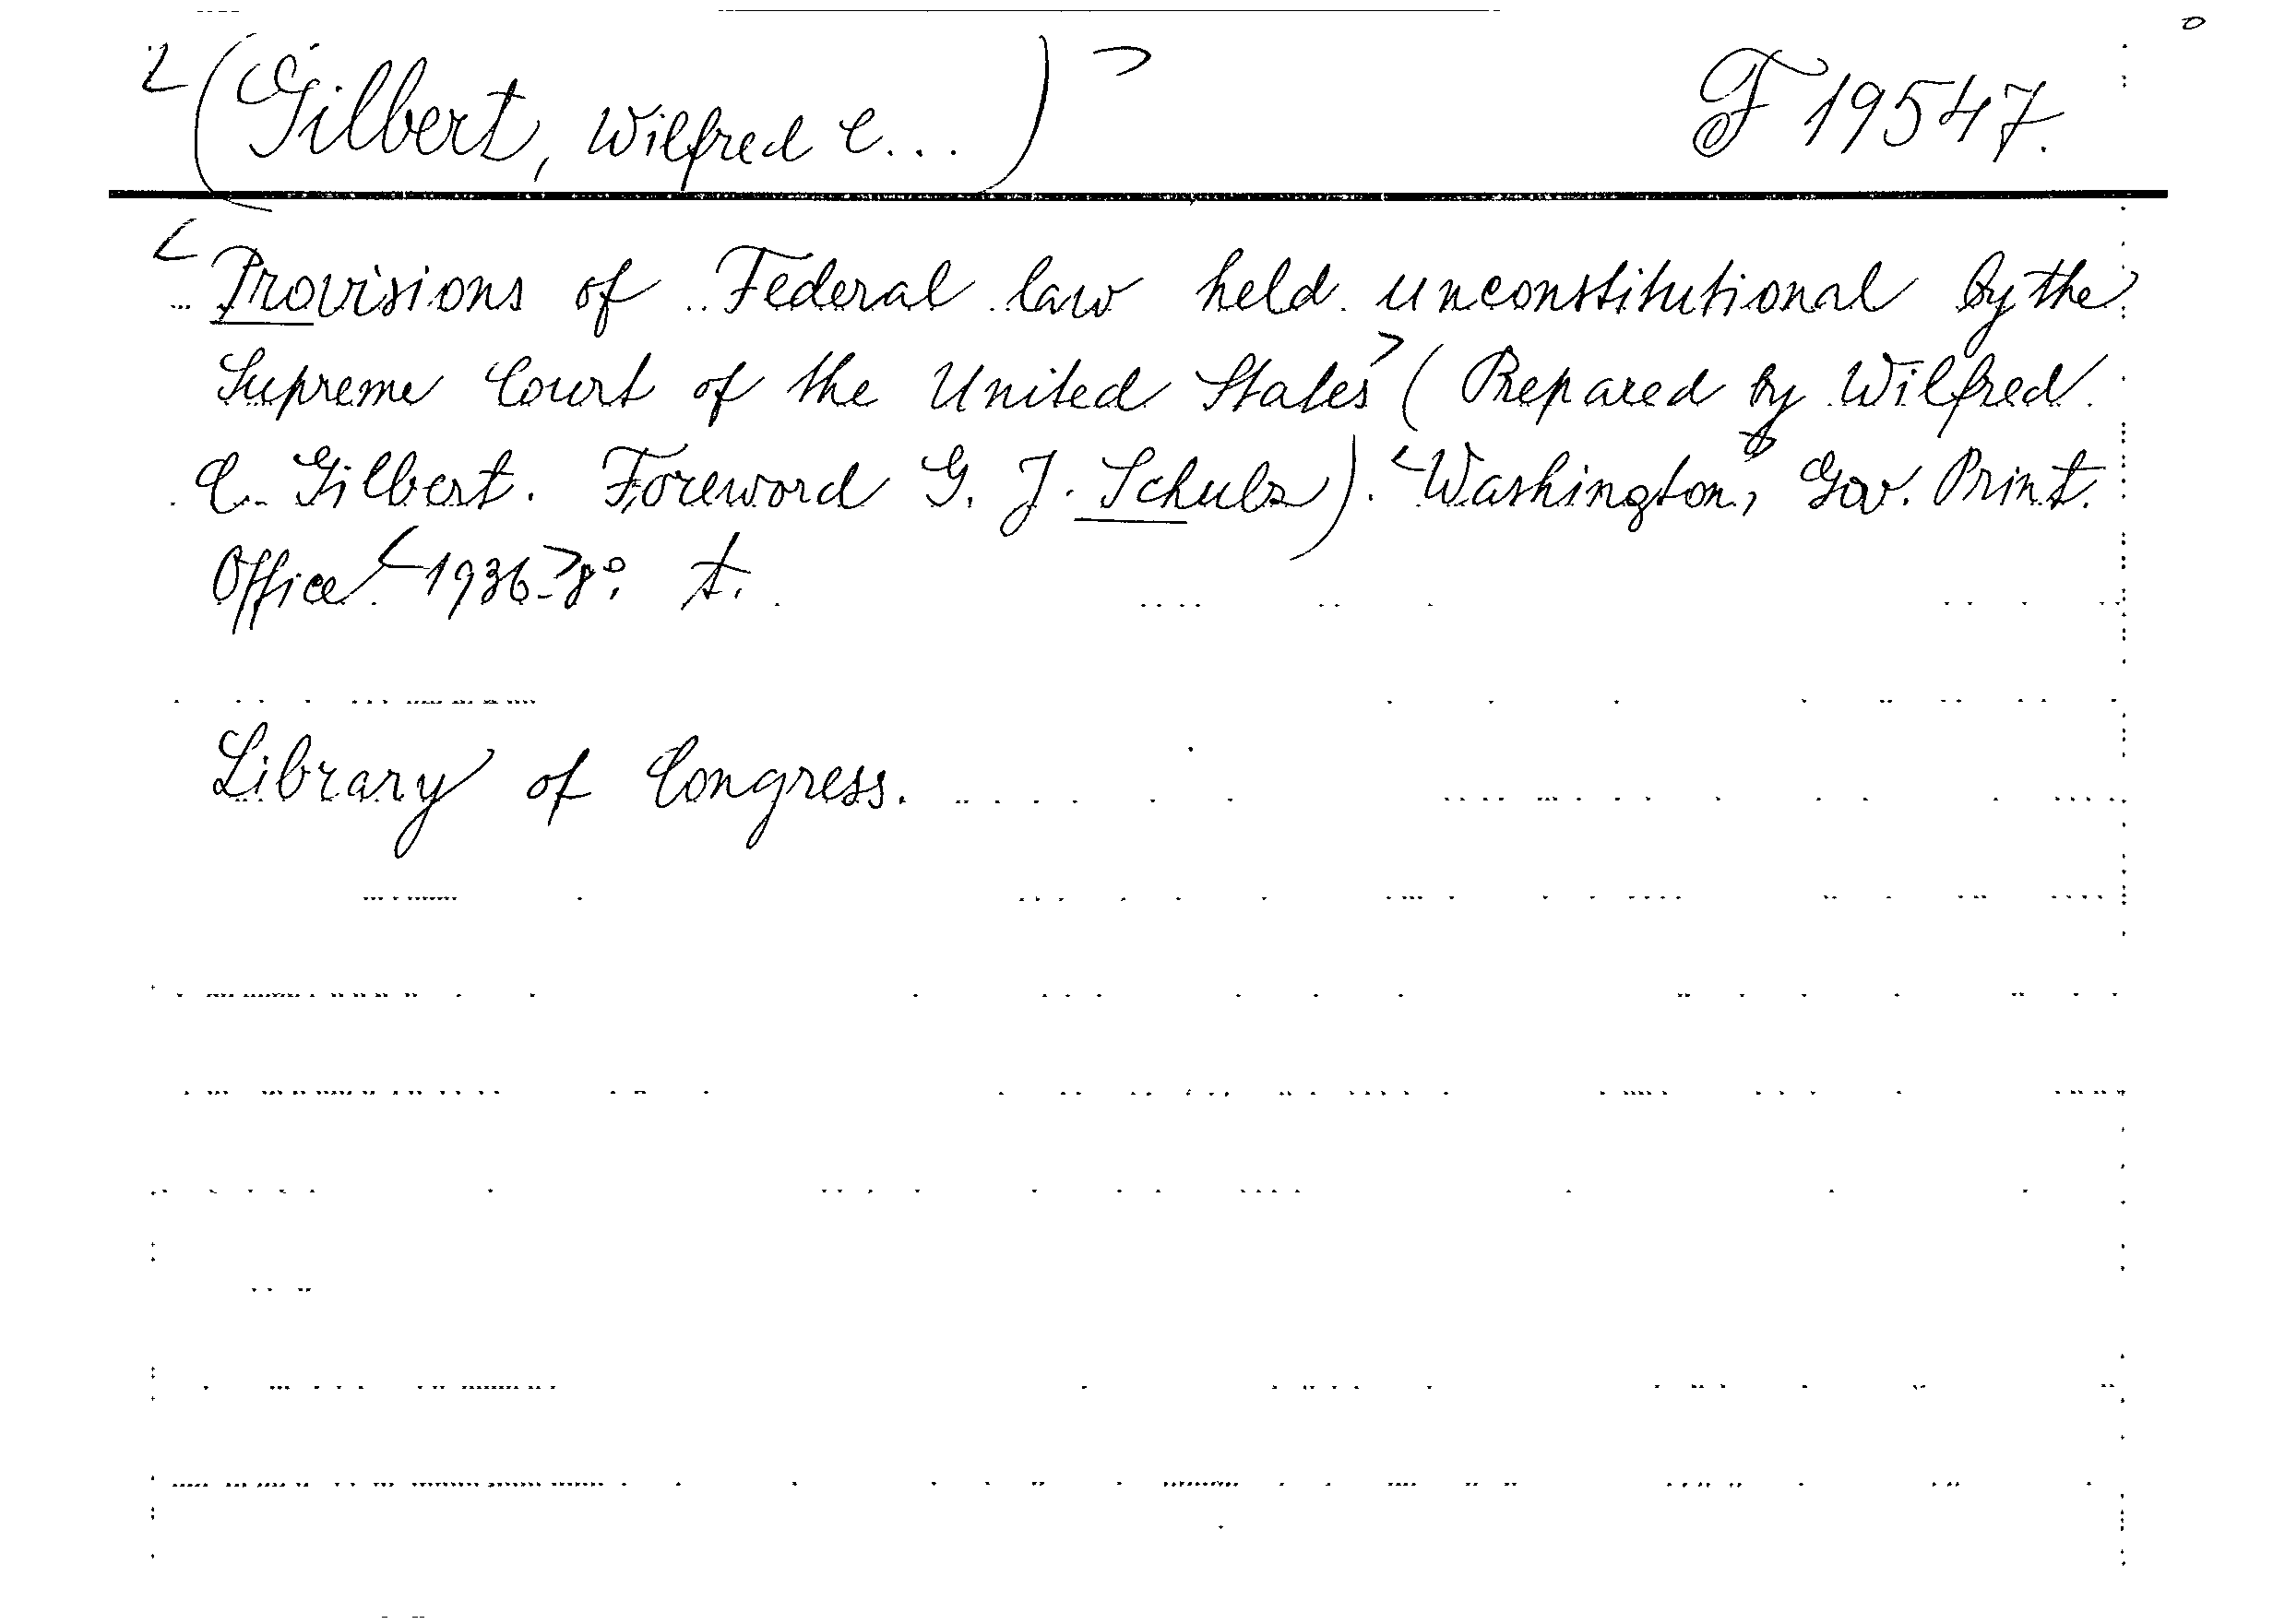 <(Gilbert, Wilfred C...)> F 19547.
<Provisions of Federal law held unconstitutional by the
Supreme Court of the United States> (Prepared by Wilfred
C. Gilbert. Foreword G. J. Schulz). <Washington, Gov. Print.
Office. <1936.> 8º. t.
Library of Congress.